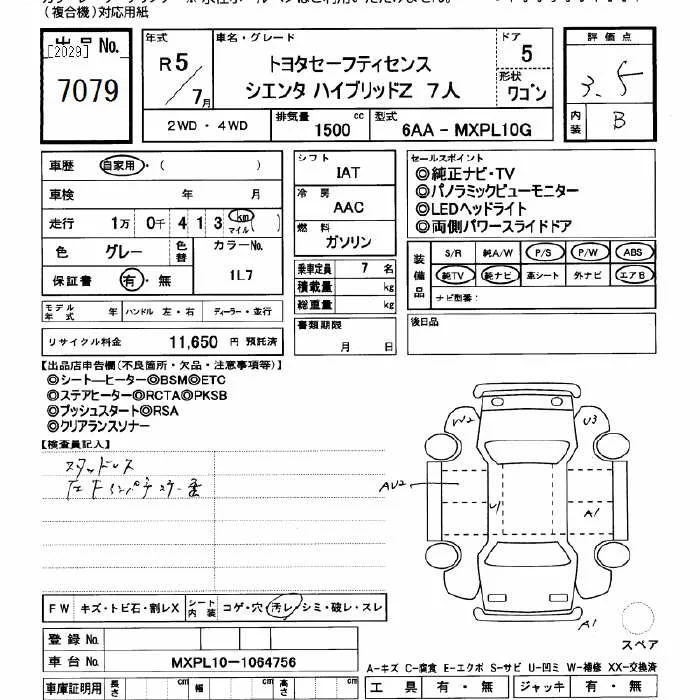 (複合機)対応用紙
出品No. [2029]
7079
年式 R5/7月
車名・グレード
トヨタセーフティセンス
シエンタ ハイブリッドZ 7人
ドア 5
形状 ワゴン
評価点 3.5
内装 B
2WD・4WD
排気量 1500 cc
型式 6AA-MXPL10G
車歴 自家用・( )
車検 年 月
走行 1万 0千 4 1 3 km マイル ( )
色 グレー
色替
カラーNo. 1L7
保証書 有・無
モデル年式 年
ハンドル 左・右
ディーラー・並行
リサイクル料金 11,650 円 預託済
シフト IAT
冷房 AAC
燃料 ガソリン
乗車定員 7 名
積載量 kg
総重量 kg
書類期限 月 日
セールスポイント
◎純正ナビ・TV
◎パノラミックビューモニター
◎LEDヘッドライト
◎両側パワースライドドア
装備品
S/R 純A/W P/S P/W ABS
純TV 純ナビ 革シート 外ナビ エアB
ナビ型番:
後日品
【出品店申告欄(不良箇所・欠品・注意事項等)】
◎シートーヒーター◎BSM◎ETC
◎ステアヒーター◎RCTA◎PKSB
◎プッシュスタート◎RSA
◎クリアランスソナー
【検査員記入】
スタッドレス
W2 U3
AU2 U1 A1
A1
スペア
FW キズ・トビ石・割レX
シート内装 コゲ・穴・汚レ・シミ・破レ・スレ
登録No.
車台No. MXPL10-1064756
車庫証明用 長さ cm 幅 cm 高さ cm
A-キズ C-腐食 E-エクボ S-サビ U-凹ミ W-補修 XX-交換済
工具 有・無 ジャッキ 有・無